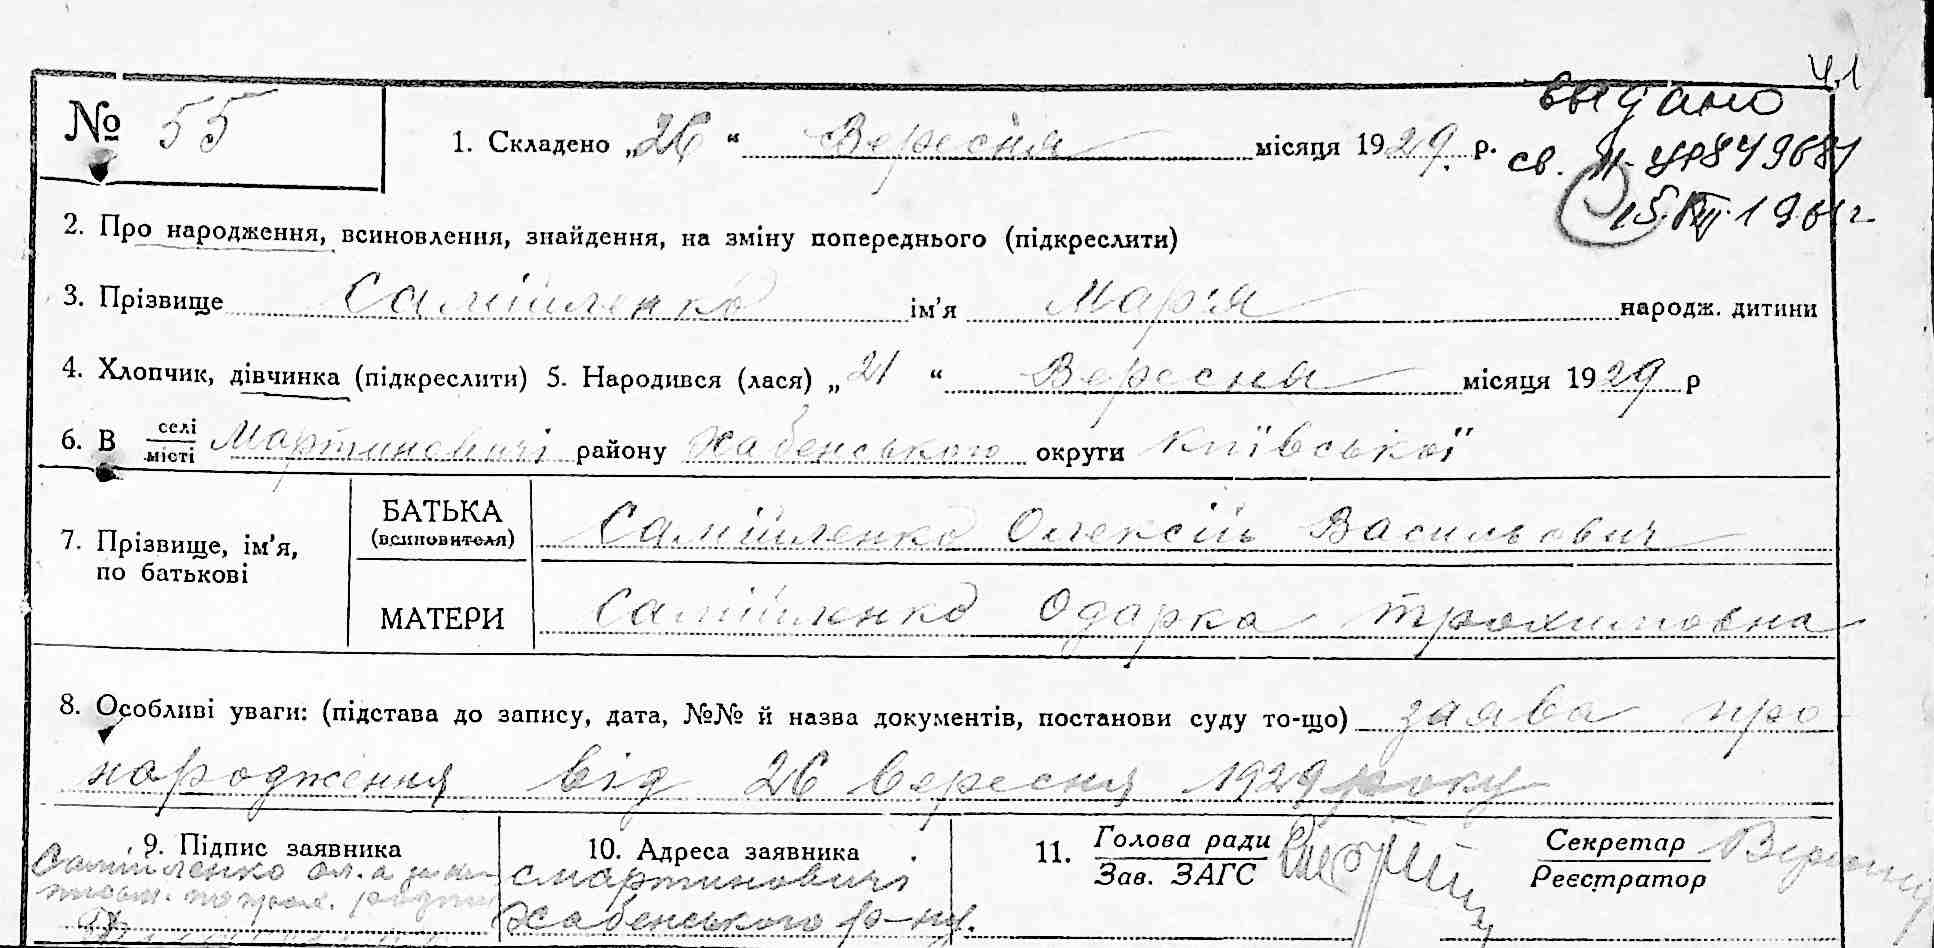 ч.1
выдано
№ 55
1. Складено „26“ Вересня місяця 1929 р.
св. II-УР 849681
15.VIII.1961г
2. Про народження, всиновлення, знайдення, на зміну попереднього (підкреслити)
3. Прізвище Самійленко ім’я Мар'я народж. дитини
4. Хлопчик, дівчинка (підкреслити) 5. Народився (лася) „21“ Вересня місяця 1929 р
6. В селі/місті Мартиновичі району Хабенського округи Київської
7. Прізвище, ім’я, по батькові
БАТЬКА (всиновителя) Самійленко Олексій Васильович
МАТЕРИ Самійленко Одарка Трохимовна
8. Особливі уваги: (підстава до запису, дата, №№ й назва документів, постанови суду то-що) заява про
народження від 26 вересня 1929 року
9. Підпис заявника
Самійленко Ол. а за
10. Адреса заявника
с мартиновичі
Хабенського р-ну.
11. Голова ради
Зав. ЗАГС
Секретар
Реєстратор